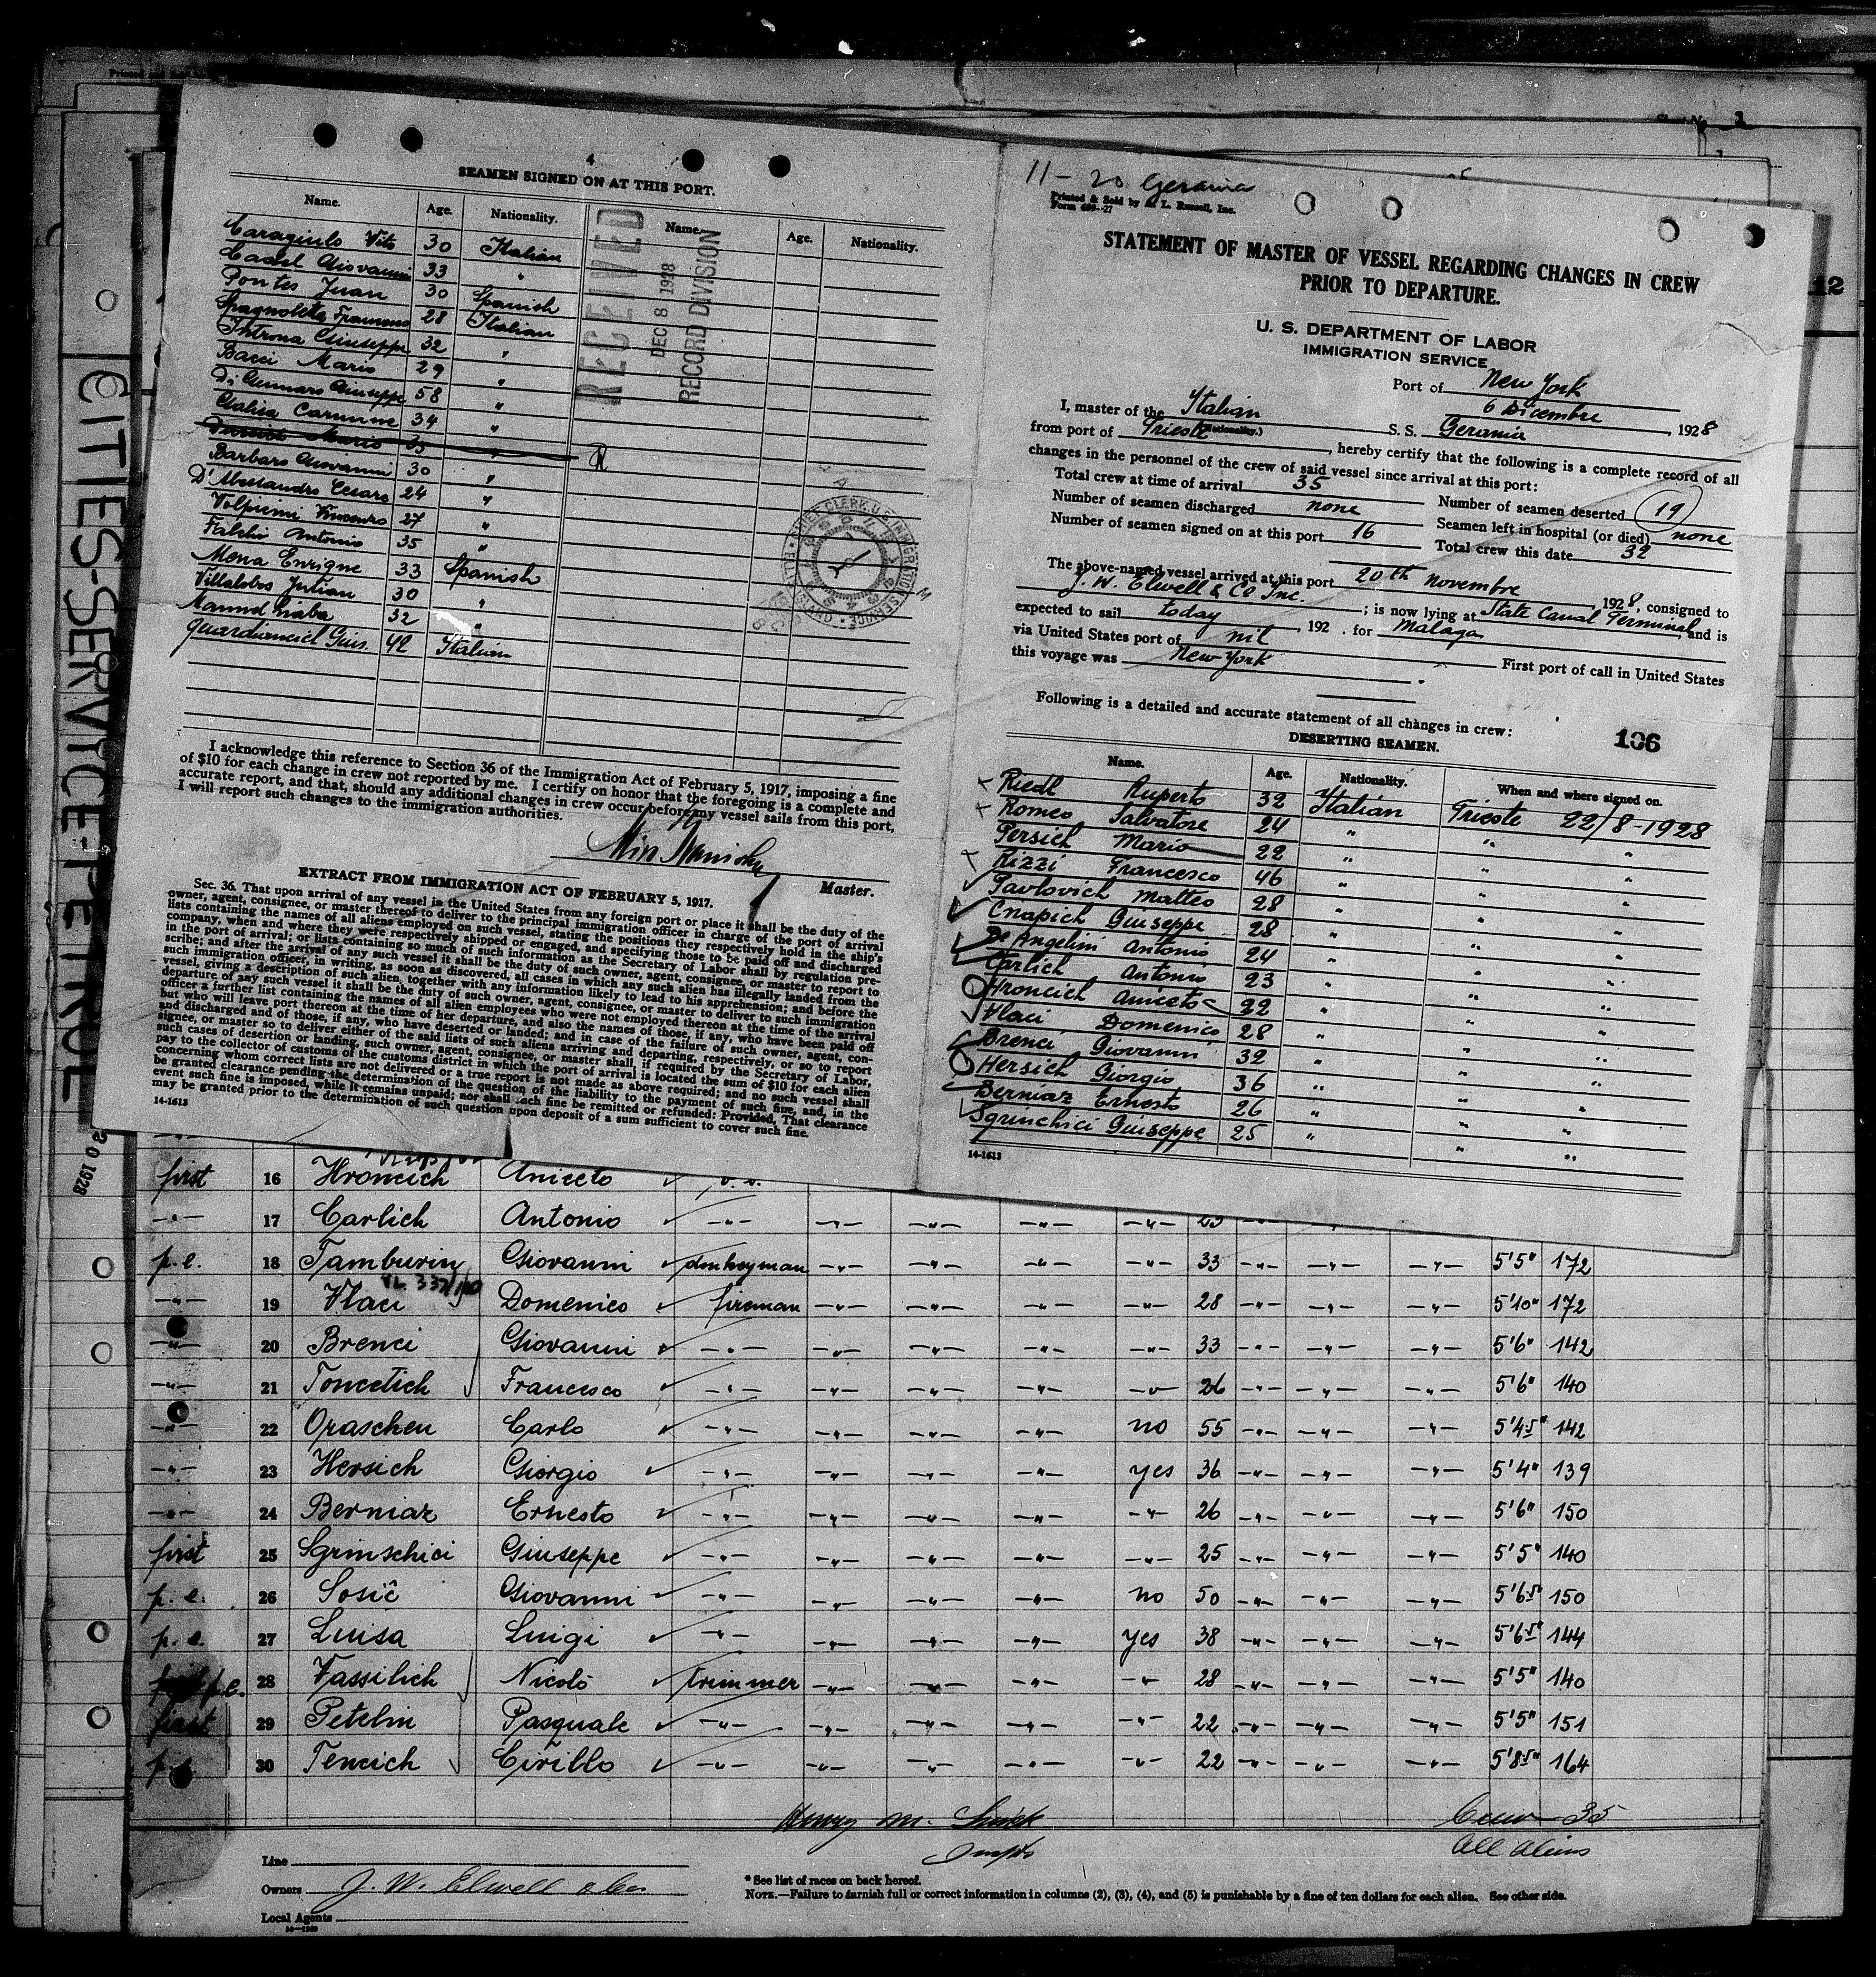 4
SEAMEN SIGNED ON AT THIS PORT.
Name. Age. Nationality. Name. Age. Nationality.
Caragiulo Vito 30 Italian
Casal Giovanni 33 "
Pontes Juan 30 Spanish
Spagnoletta 28 Italian
Introna Giuseppe 32 "
Bacci Mario 29 "
Di Gennaro Giuseppe 58 "
Galisa Carmine 34 "
Mario 35 "
Barbaro Giovanni 30 "
D'Alessandro Cesare 24 "
Volpicini Vincenzo 27 "
Falchi Antonio 35 "
Mena Enrique 33 Spanish
Villalobos Julian 30 "
32 "
Guardiancich Gius. 42 Italian
RECEIVED
DEC 8 1928
RECORD DIVISION
I acknowledge this reference to Section 36 of the Immigration Act of February 5, 1917, imposing a fine
of $10 for each change in crew not reported by me. I certify on honor that the foregoing is a complete and
accurate report, and that, should any additional changes in crew occur before my vessel sails from this port,
I will report such changes to the immigration authorities.
Master.
EXTRACT FROM IMMIGRATION ACT OF FEBRUARY 5, 1917.
Sec. 36. That upon arrival of any vessel in the United States from any foreign port or place it shall be the duty of the
owner, agent, consignee, or master thereof to deliver to the principal immigration officer in charge of the port of arrival
lists containing the names of all aliens employed on such vessel, stating the positions they respectively hold in the ship's
company, when and where they were respectively shipped or engaged, and specifying those to be paid off and discharged
in the port of arrival; or lists containing so much of such information as the Secretary of Labor shall by regulation pre-
scribe; and after the arrival of any such vessel it shall be the duty of such owner, agent, consignee, or master to report to
such immigration officer, in writing, as soon as discovered, all cases in which any such alien has illegally landed from the
vessel, giving a description of such alien, together with any information likely to lead to his apprehension; and before the
departure of any such vessel it shall be the duty of such owner, agent, consignee, or master to deliver to such immigration
officer a further list containing the names of all alien employees who were not employed thereon at the time of the arrival
but who will leave port thereon at the time of her departure, and also the names of those, if any, who have been paid off
and discharged and of those, if any, who have deserted or landed; and in case of the failure of such owner, agent, con-
signee, or master so to deliver either of the said lists of such aliens arriving and departing, respectively, or so to report
such cases of desertion or landing, such owner, agent, consignee, or master shall, if required by the Secretary of Labor,
pay to the collector of customs of the customs district in which the port of arrival is located the sum of $10 for each alien
concerning whom correct lists are not delivered or a true report is not made as above required; and no such vessel shall
be granted clearance pending the determination of the question of the liability to the payment of such fine, and, in the
event such fine is imposed, while it remains unpaid; nor shall such fine be remitted or refunded: Provided, That clearance
may be granted prior to the determination of such question upon deposit of a sum sufficient to cover such fine.
14-1613
11-20 Gerania
Printed & Sold by L. Russell, Inc.
STATEMENT OF MASTER OF VESSEL REGARDING CHANGES IN CREW
PRIOR TO DEPARTURE.
U. S. DEPARTMENT OF LABOR
IMMIGRATION SERVICE
Port of New York
6 Dicembre, 1928
I, master of the Italian (Nationality.) S. S. Gerania
from port of Trieste, hereby certify that the following is a complete record of all
changes in the personnel of the crew of said vessel since arrival at this port:
Total crew at time of arrival 35
Number of seamen discharged none Number of seamen deserted 19
Number of seamen signed on at this port 16 Seamen left in hospital (or died) none
Total crew this date 32
The above-named vessel arrived at this port 20th Novembre 1928, consigned to
J. W. Elwell & Co Inc.; is now lying at State Canal Terminal and is
expected to sail today 192 . for Malaga
via United States port of nil First port of call in United States
this voyage was New York
Following is a detailed and accurate statement of all changes in crew:
106
DESERTING SEAMEN.
Name. Age. Nationality. When and where signed on.
Riedl Ruperto 32 Italian Trieste 22/8-1928
Romeo Salvatore 24 " " "
Persich Mario 22 " " "
Rizzi Francesco 46 " " "
Pavlovich Matteo 28 " " "
Cnapich Giuseppe 28 " " "
De Angelini Antonio 24 " " "
Carlich Antonio 23 " " "
Hroncich Aniceto 22 " " "
Vlaci Domenico 28 " " "
Brenci Giovanni 32 " " "
Hersich Giorgio 36 " " "
Berniaz Ernesto 26 " " "
Sgrinchici Giuseppe 25 " " "
14-1613
12
CITIES-SERVICE-PETROL
20 1928
first 16 Hroncich Aniceto
-"- 17 Carlich Antonio -"- -"- -"- -"- -"- 23
p.e. 18 Tamburin Giovanni donkeyman -"- -"- -"- -"- 33 -"- -"- -"- 5'5" 172
-"- 19 Vlaci Domenico fireman -"- -"- -"- -"- 28 -"- -"- -"- 5'10" 172
-"- 20 Brenci Giovanni -"- -"- -"- -"- -"- 33 -"- -"- -"- 5'6" 142
-"- 21 Toncetich Francesco -"- -"- -"- -"- -"- 26 -"- -"- -"- 5'6" 140
-"- 22 Oraschen Carlo -"- -"- -"- -"- no 55 -"- -"- -"- 5'4.5" 142
-"- 23 Hersich Giorgio -"- -"- -"- -"- yes 36 -"- -"- -"- 5'4" 139
-"- 24 Berniaz Ernesto -"- -"- -"- -"- -"- 26 -"- -"- -"- 5'6" 150
first 25 Sgrinschici Giuseppe -"- -"- -"- -"- -"- 25 -"- -"- -"- 5'5" 140
p.e. 26 Sosič Giovanni -"- -"- -"- -"- no 50 -"- -"- -"- 5'6.5" 150
p.e. 27 Luisa Luigi -"- -"- -"- -"- yes 38 -"- -"- -"- 5'6.5" 144
p.e. 28 Vassilich Nicolò trimmer -"- -"- -"- -"- 28 -"- -"- -"- 5'5" 140
first 29 Petelin Pasquale -"- -"- -"- -"- -"- 22 -"- -"- -"- 5'5" 151
30 Tencich Cirillo -"- -"- -"- -"- -"- 22 -"- -"- -"- 5'8.5" 164
Henry M.
Crew 35
All Aliens
Line
Owners J. W. Elwell & Co.
Local Agents
* See list of races on back hereof.
NOTE.—Failure to furnish full or correct information in columns (2), (3), (4), and (5) is punishable by a fine of ten dollars for each alien. See other side.